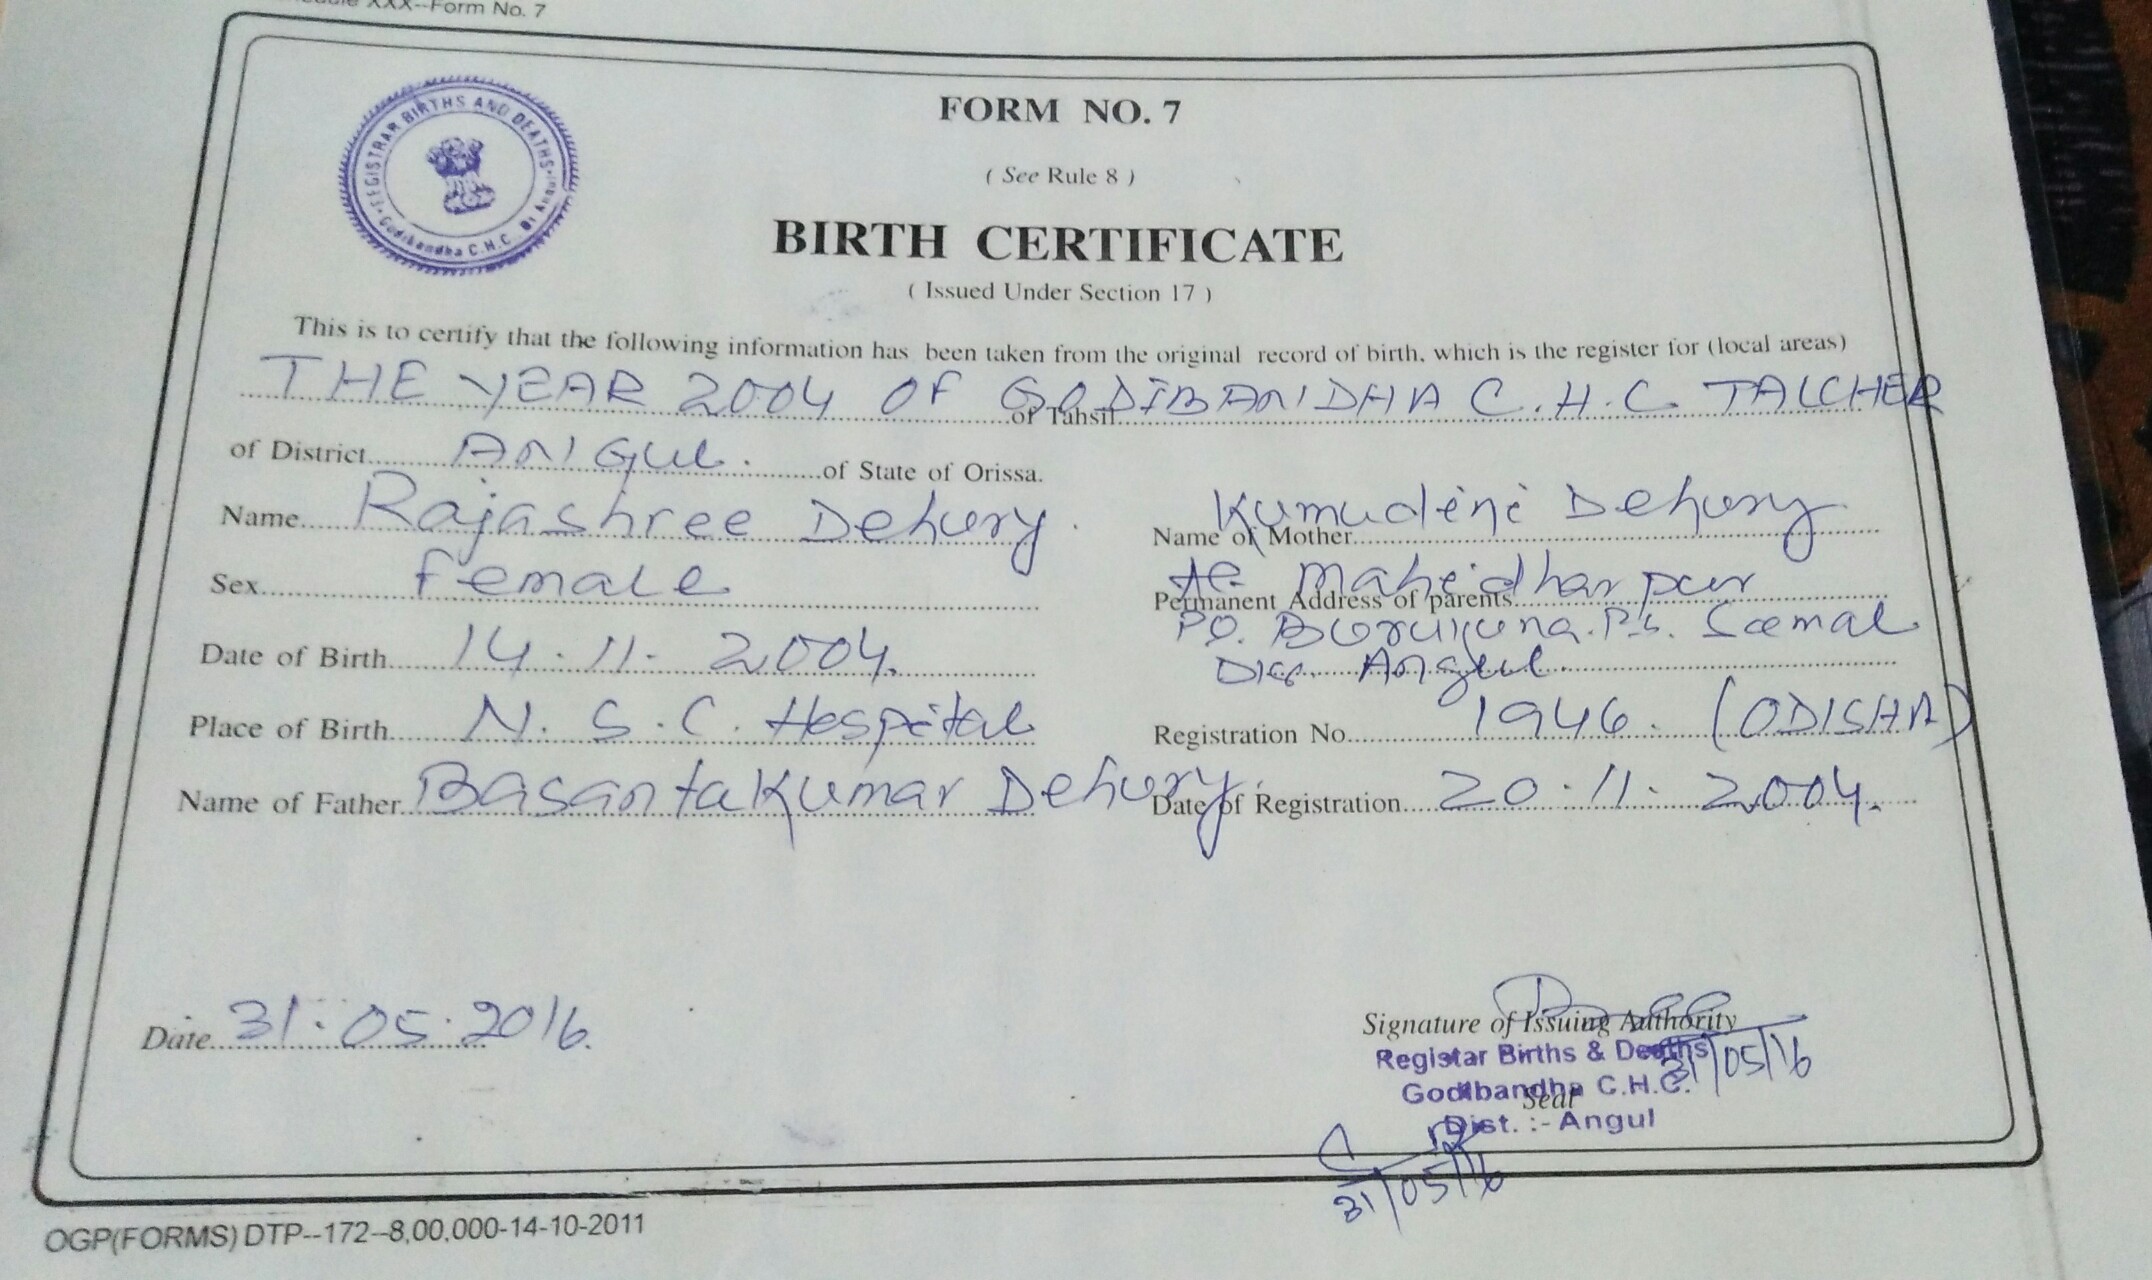 XXX--Form No. 7
REGISTRAR BIRTHS AND DEATHS
Godibandha C.H.C. Dt Angul
FORM NO. 7
( See Rule 8 )
BIRTH CERTIFICATE
( Issued Under Section 17 )
This is to certify that the following information has been taken from the original record of birth, which is the register for (local areas)
THE YEAR 2004 OF of Tahsil GODIBANDHA C.H.C TALCHER
of District ANGUL. of State of Orissa.
Name Rajashree Dehury
Sex Female
Date of Birth 14.11.2004.
Place of Birth N.S.C. Hospital
Name of Father Basanta Kumar Dehury
Name of Mother Kumudini Dehury
Permanent Address of parents At- Maheidharpur
PO. P.S. Samal
Dist. Angul
Registration No 1946. (ODISHA)
Date of Registration 20.11.2004.
Date 31.05.2016.
Signature of Issuing Authority
Registar Births & Deaths
31/05/16
Godibandha C.H.C.
Seal
Dist. :- Angul
31/05/16
OGP(FORMS) DTP--172--8,00,000-14-10-2011